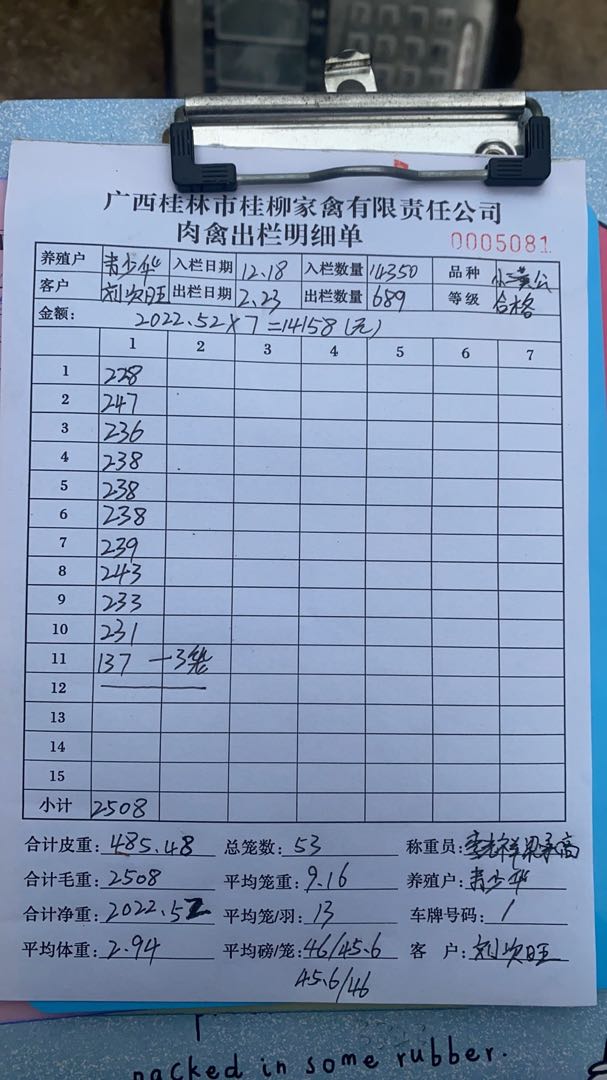 广西桂林市桂柳家禽有限责任公司
肉禽出栏明细单
0005081
养殖户 青少华 入栏日期 12.18 入栏数量 14350 品种 小黄公
客户 刘次旺 出栏日期 2.23 出栏数量 689 等级 合格
金额: 2022.52×7=14158(元)
1 2 3 4 5 6 7
1 228
2 247
3 236
4 238
5 238
6 238
7 239
8 243
9 233
10 231
11 137 —3笼
12
13
14
15
小计 2508
合计皮重: 485.48 总笼数: 53 称重员:
合计毛重: 2508 平均笼重: 9.16 养殖户: 青少华
合计净重: 2022.52 平均笼/羽: 13 车牌号码: /
平均体重: 2.94 平均磅/笼: 46/45.6 客 户: 刘次旺
45.6/46
packed in some rubber.